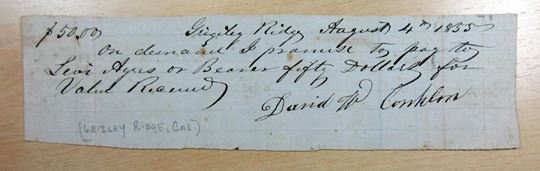 $50.00 Grizley Ridge August 4th 1855
On demand I promise to pay to
Levi Ayris or Bearer fifty Dollars for
Value Received
David W Conklon
(GRIZLEY RIDGE, CAL.)